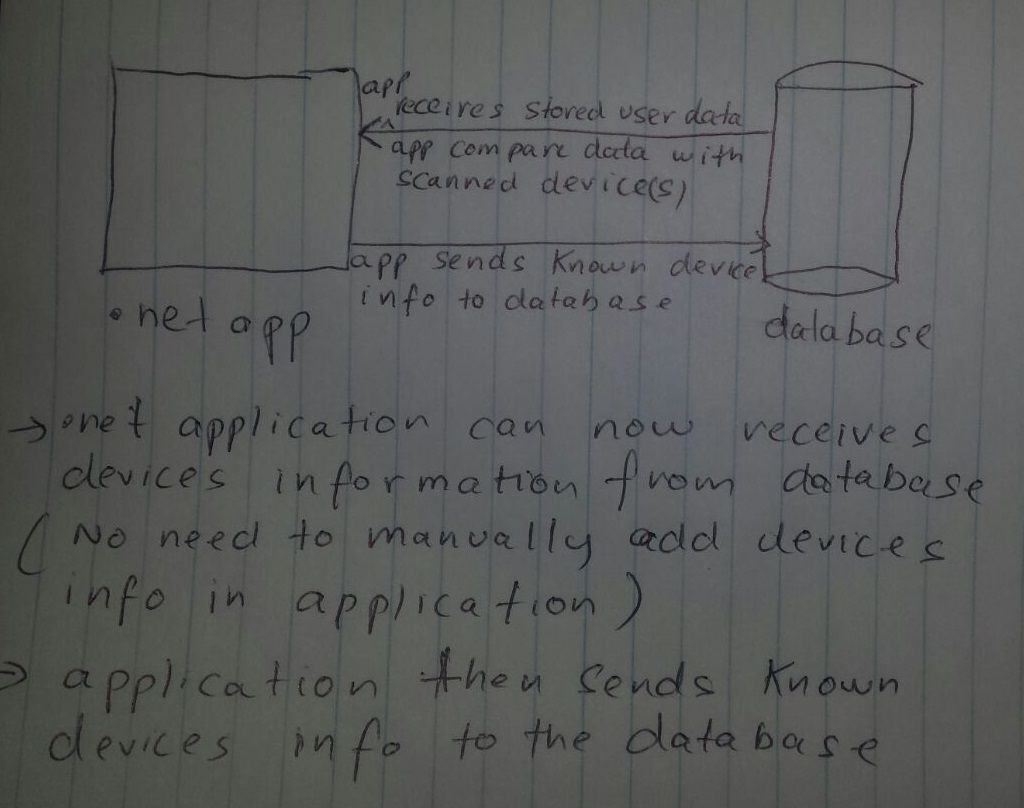 app
receives stored user data
app compare data with
scanned device(s)
app sends known device
info to database
.net app
database
→ .net application can now receives
devices information from database
(No need to manually add devices
info in application)
→ application then sends known
devices info to the database